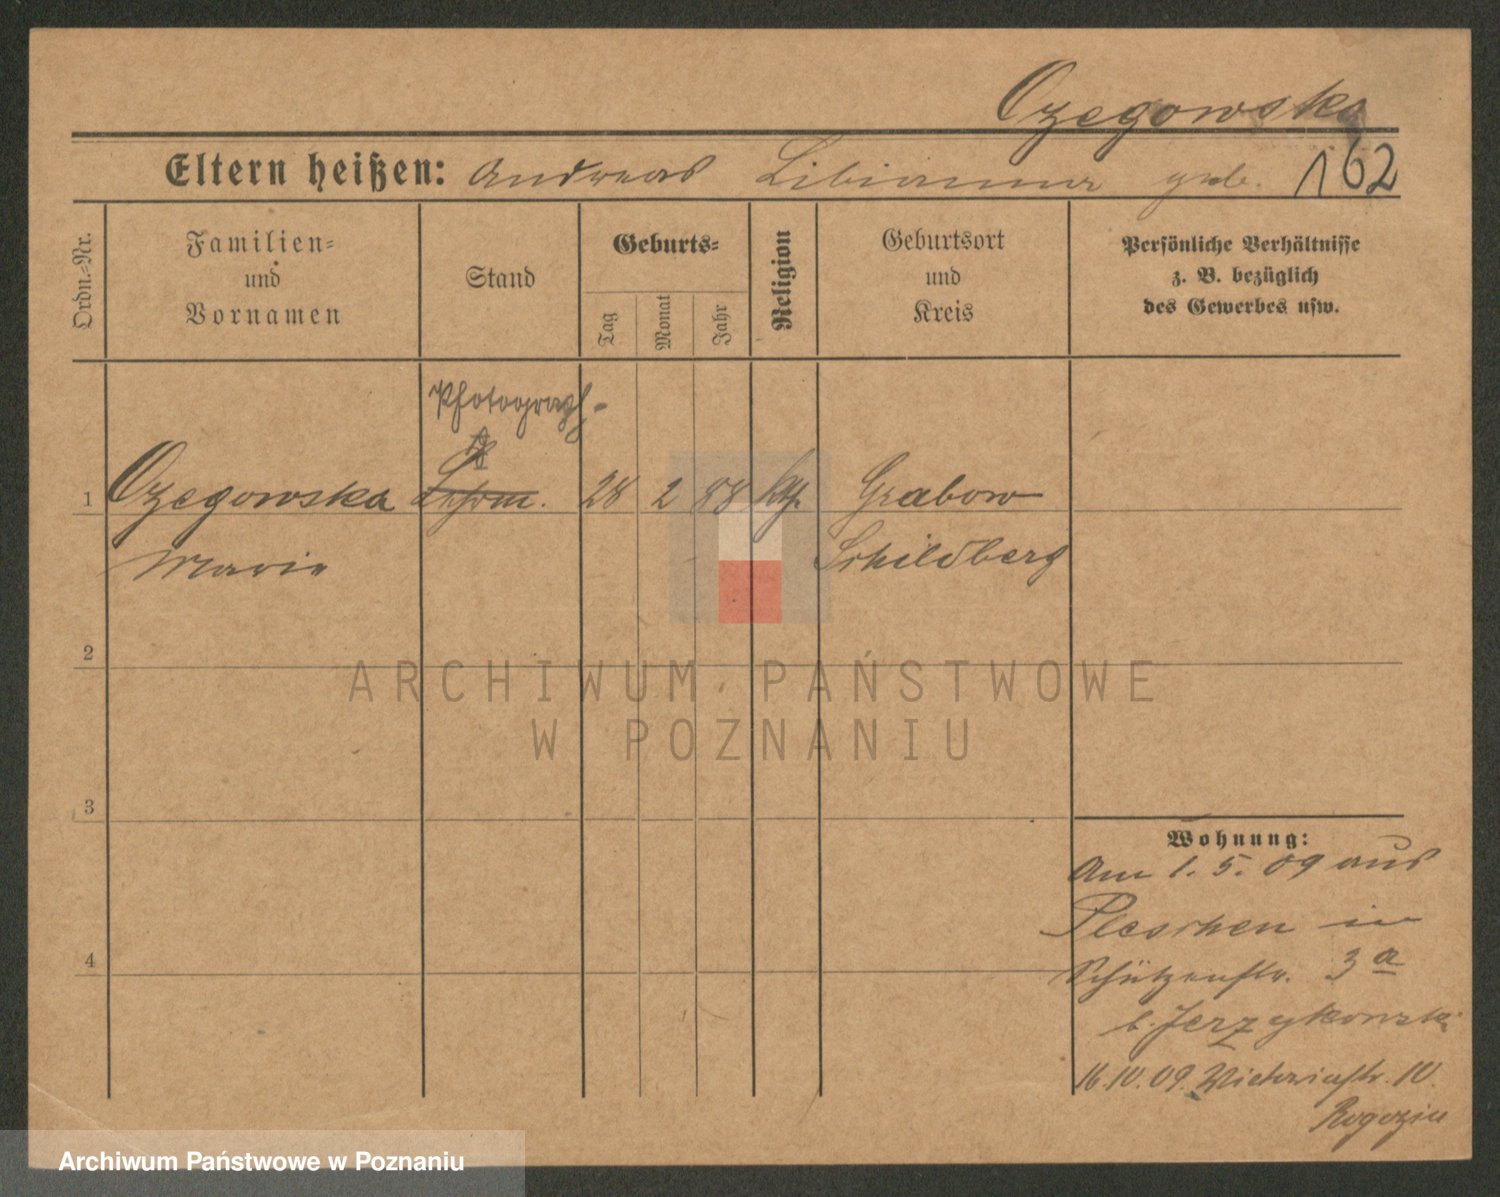 Ozegowska
Eltern heißen: Andreas Libianna geb. 162
Ordn.-Nr.
Familien-
und
Vornamen
Stand
Geburts-
Tag
Monat
Jahr
Religion
Geburtsort
und
Kreis
Persönliche Verhältnisse
z. B. bezüglich
des Gewerbes usw.
Photograph.
1 Ozegowska 28 2 88 kth. Grabow
Marie Schildberg
2
3
4
Wohnung:
Am 1. 5. 09 aus
Pleschen in
Schützenstr. 3a
b. Jerzykowski
16.10.09. Victoriastr. 10.
Rogozin
ARCHIWUM PAŃSTWOWE
W POZNANIU
Archiwum Państwowe w Poznaniu